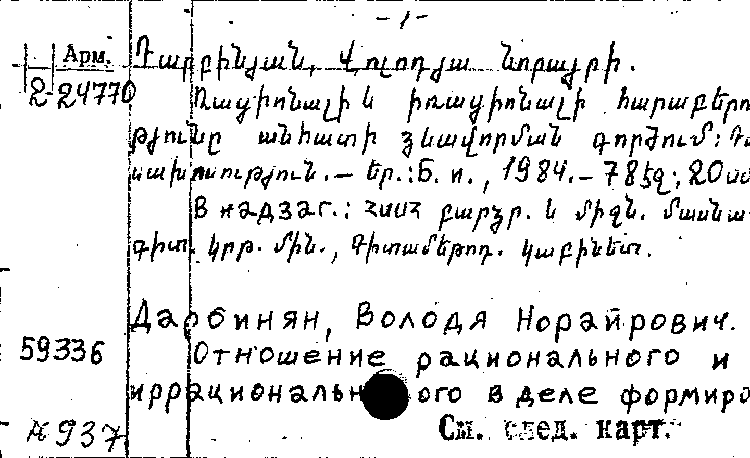 - 1 -
Арм.
2-24770
Դարբինյան, Վոլոդյա Նորայրի.
Ռացիոնալի և իռացիոնալի հարաբերո
թյունը անհատի ձևավորման գործում: Դա
սախոսություն. – Եր.: Б. и., 1984. – 78 էջ; 20 սմ
В надзаг.: ՀՍՍՀ բարձր. և միջն. մասնա
գիտ. կրթ. մին., Գիտամեթոդ. կաբինետ.
Дарбинян, Володя Норайрович.
59336
Отношение рационального и
иррациональн ого в деле формиро
N 937
См. след. карт.